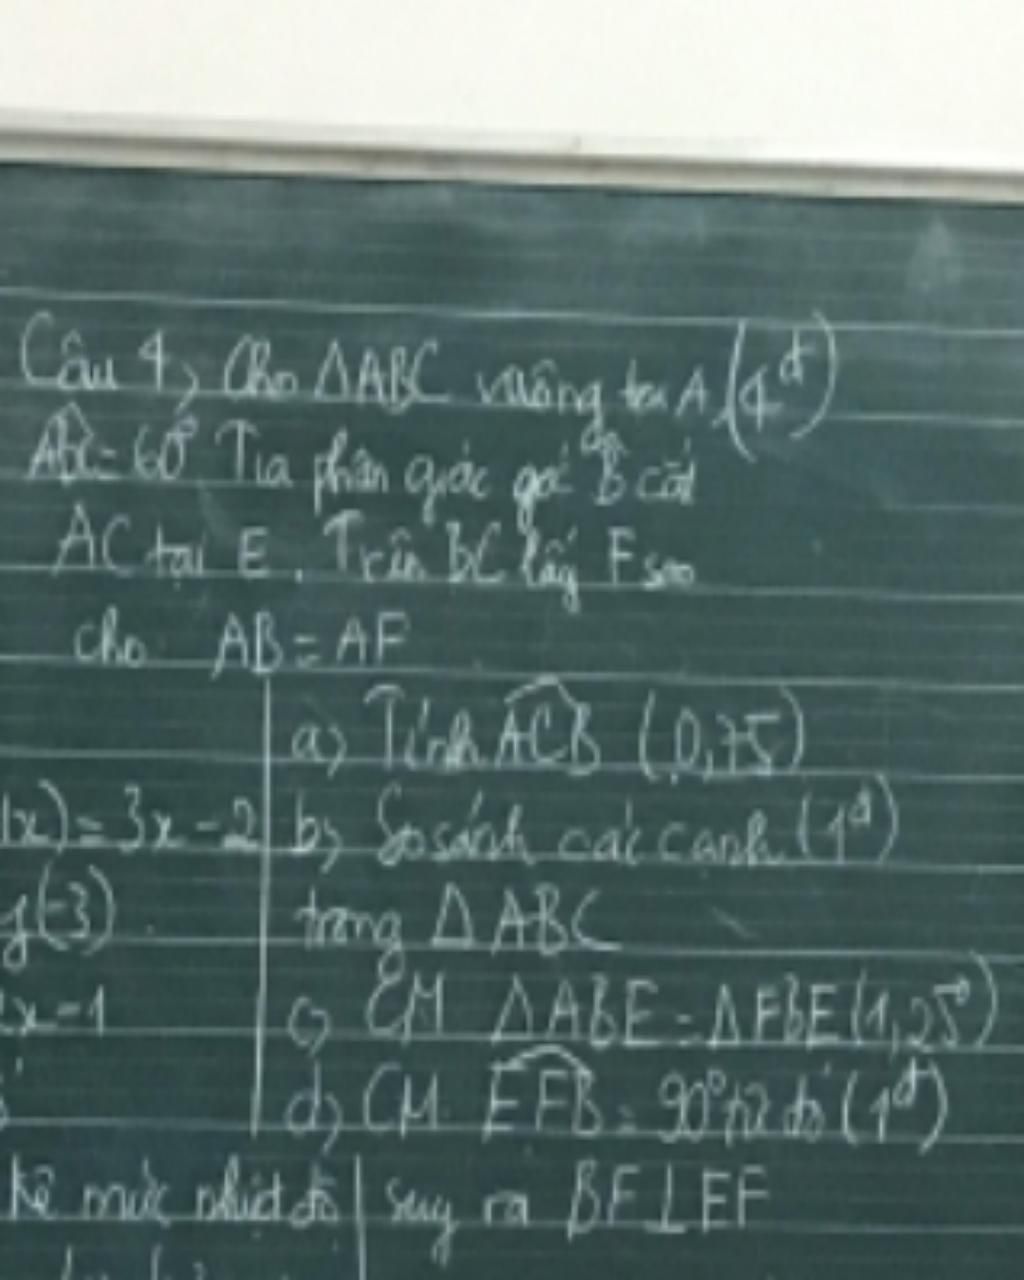 Câu 4, Cho ΔABC vuông tại A (4đ)
= 60° Tia phân giác góc B cắt
AC tại E. Trên BC lấy F sao
cho AB = AF
a) Tính ACB (0,75)
(x) = 3x - 2
b) So sánh các cạnh (1đ)
(-3)
trong Δ ABC
x - 1
c) CM ΔABE = ΔFBE (1,25đ)
d) CM EFB = 90° từ đó (1đ)
kê mức nhiệt độ
suy ra BF ⊥ EF